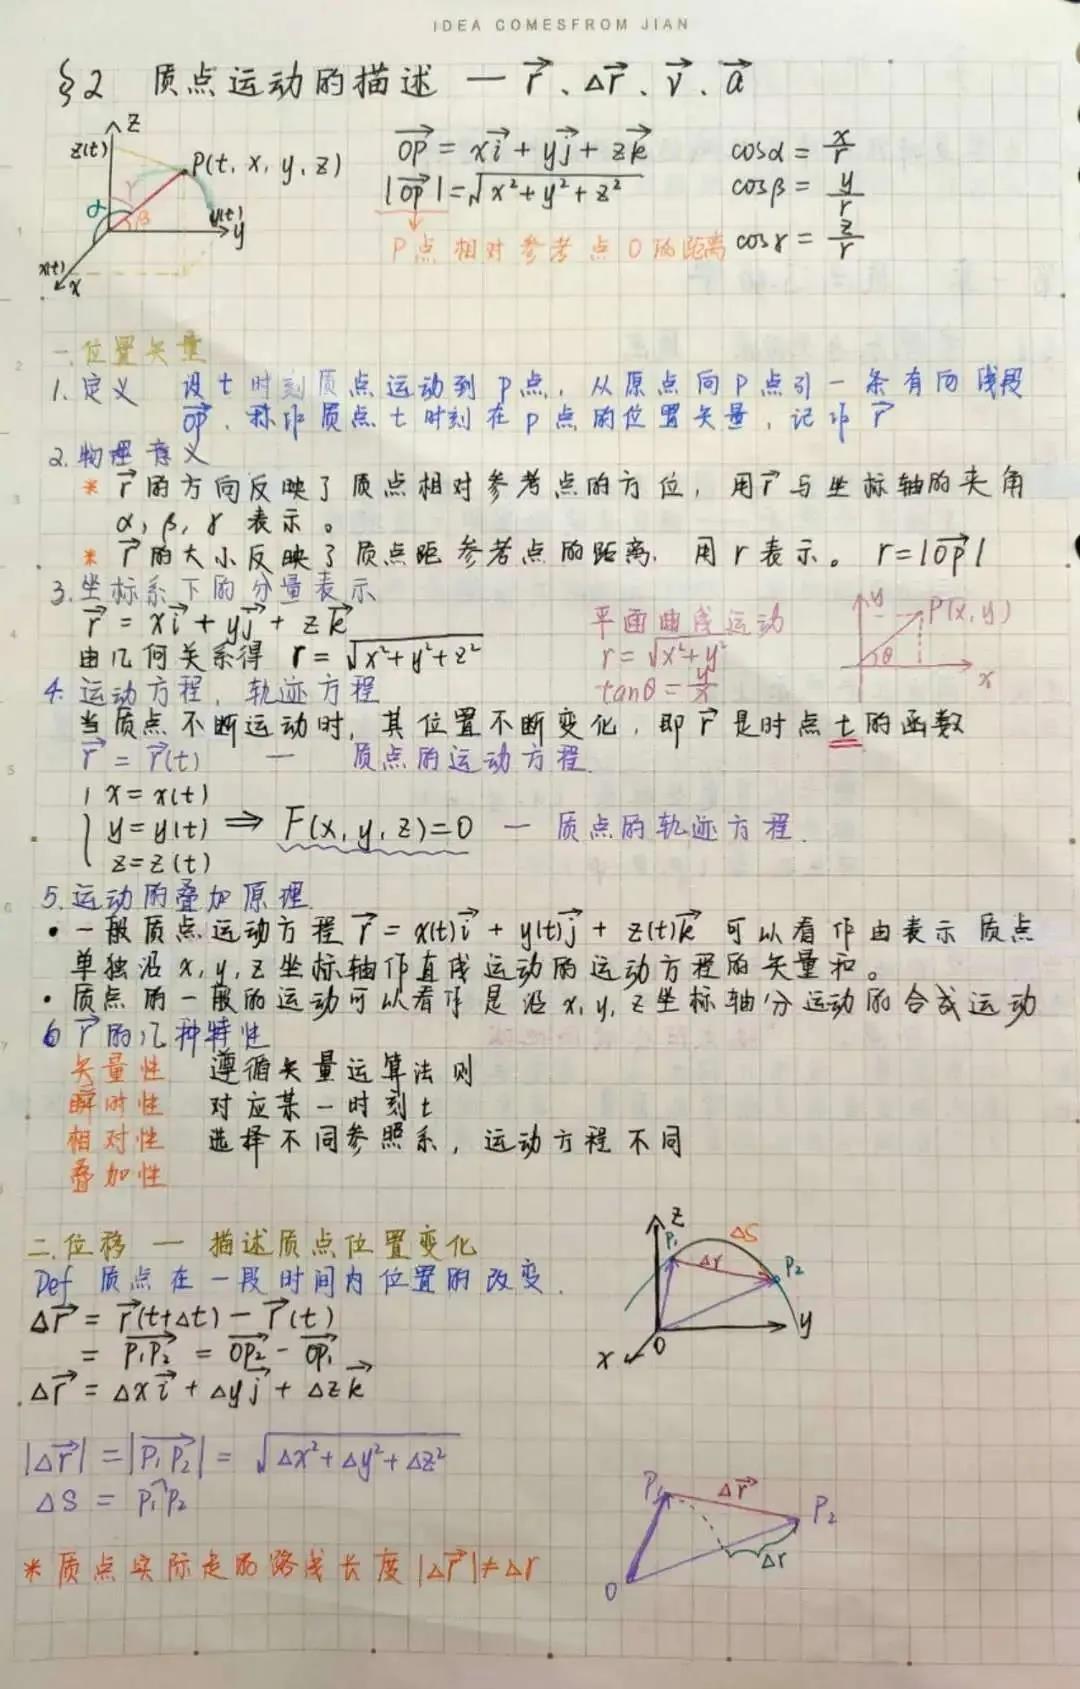 IDEA COMESFROM JIAN
§2 质点运动的描述 — r⃗、Δr⃗、v⃗、a⃗
z
z(t)
P(t, x, y, z)
α
γ
β
y(t)
y
x(t)
x
OP⃗ = xi⃗ + yj⃗ + zk⃗
|OP⃗| = √(x²+y²+z²)
P点相对参考点O的距离
cosα = x/r
cosβ = y/r
cosγ = z/r
一.位置矢量
1. 定义 设t时刻质点运动到P点，从原点向P点引一条有向线段
OP⃗，称作质点t时刻在P点的位置矢量，记作r⃗
2. 物理意义
* r⃗的方向反映了质点相对参考点的方位，用r⃗与坐标轴的夹角
α, β, γ 表示。
* r⃗的大小反映了质点距参考点的距离，用r表示。 r=|OP⃗|
3. 坐标系下的分量表示
r⃗ = xi⃗ + yj⃗ + zk⃗
由几何关系得 r = √(x²+y²+z²)
平面曲线运动
r = √(x²+y²)
tanθ = y/x
y
P(x, y)
θ
x
4. 运动方程，轨迹方程
当质点不断运动时，其位置不断变化，即r⃗是时点t的函数
r⃗ = r⃗(t) — 质点的运动方程.
x = x(t)
y = y(t) ⇒ F(x, y, z)=0 — 质点的轨迹方程.
z = z(t)
5. 运动的叠加原理.
• 一般质点运动方程 r⃗ = x(t)i⃗ + y(t)j⃗ + z(t)k⃗ 可以看作由表示质点
单独沿x, y, z坐标轴作直线运动的运动方程的矢量和。
• 质点的一般的运动可以看作是沿x, y, z坐标轴分运动的合成运动
6 r⃗的几种特性
矢量性 遵循矢量运算法则
瞬时性 对应某一时刻t
相对性 选择不同参照系，运动方程不同
叠加性
二.位移 — 描述质点位置变化
Def 质点在一段时间内位置的改变.
Δr⃗ = r⃗(t+Δt) − r⃗(t)
= P₁P₂⃗ = OP₂⃗ − OP₁⃗
Δr⃗ = Δxi⃗ + Δyj⃗ + Δzk⃗
z
P₁
ΔS
Δr
P₂
y
x
O
|Δr⃗| = |P₁P₂⃗| = √(Δx²+Δy²+Δz²)
ΔS = P₁P₂
* 质点实际走的路线长度 |Δr⃗| ≠ Δr
P₁
Δr⃗
P₂
Δr
O